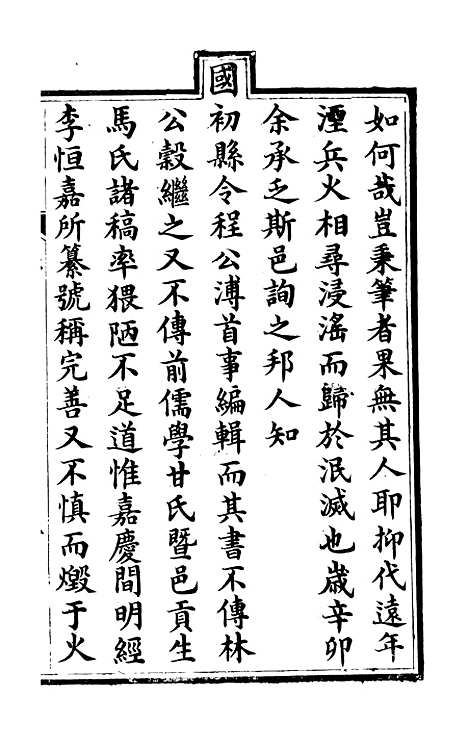 如何哉豈秉筆者果無其人耶抑代遠年
湮兵火相尋浸滛而歸於泯滅也歲辛卯
余承乏斯邑詢之邦人知
國初縣令程公溥首事編輯而其書不傳林
公穀繼之又不傳前儒學甘氏暨邑貢生
馬氏諸稿率猥陋不足道惟嘉慶間明經
李恒嘉所纂號稱完善又不慎而燬于火